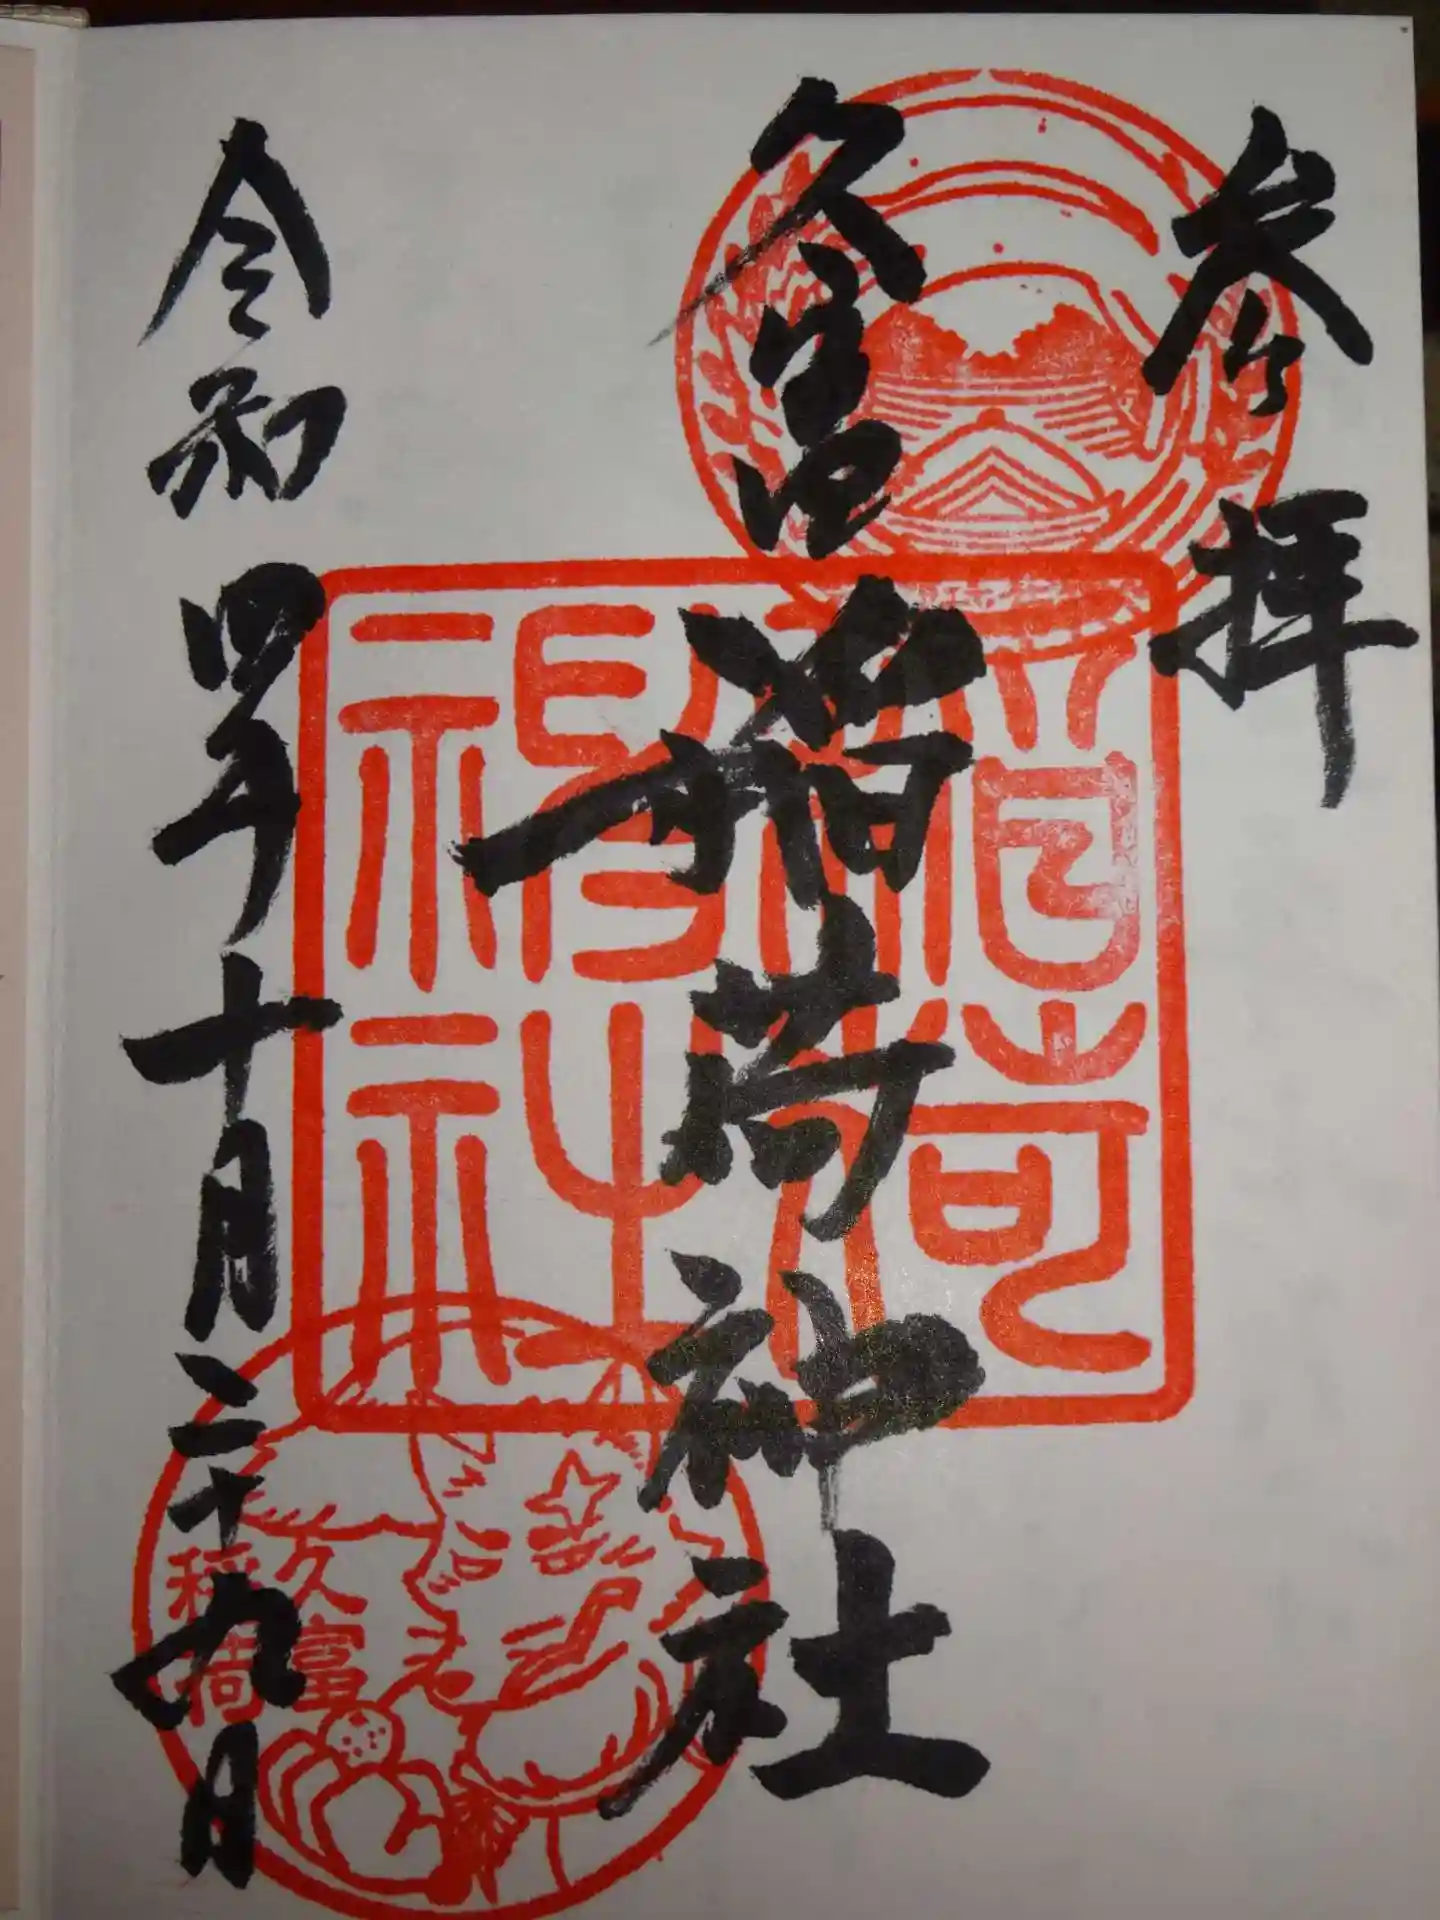 参拝
久富稲荷神社
令和四年十月二十九日
稲荷神社
久富
稲荷